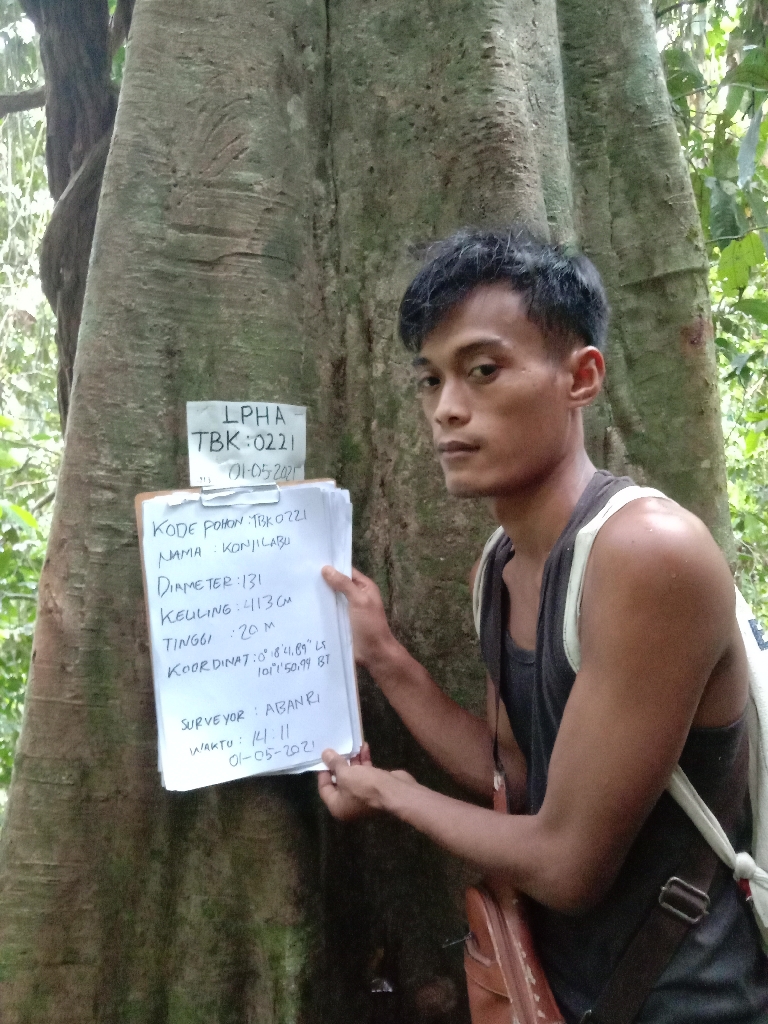 LPHA
TBK:0221
01-05-2021
KODE POHON:TBK0221
NAMA : KONJILABU
DIAMETER:131
KELILING:413 CM
TINGGI : 20 M
KOORDINAT:0°18'4,89" LS
101°1'50,99 BT
SURVEYOR : ABANRI
WAKTU : 14:11
01-05-2021